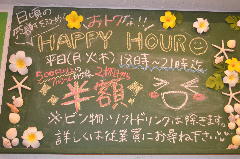 日頃の
感謝を込めて
おトクな!!
HAPPY HOUR
平日(月火木) 18時〜21時迄
500円以上の
2杯目から
半額
※ビン物・ソフトドリンクは除きます。
詳しくは従業員にお尋ね下さい